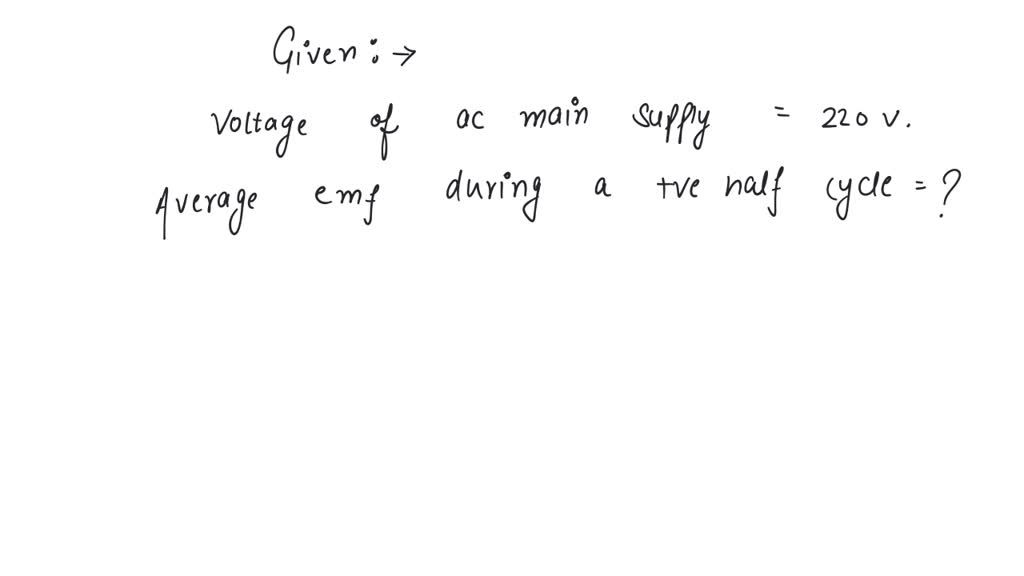 Given : →
Voltage of ac main supply = 220 v.
Average emf during a +ve half cycle = ?